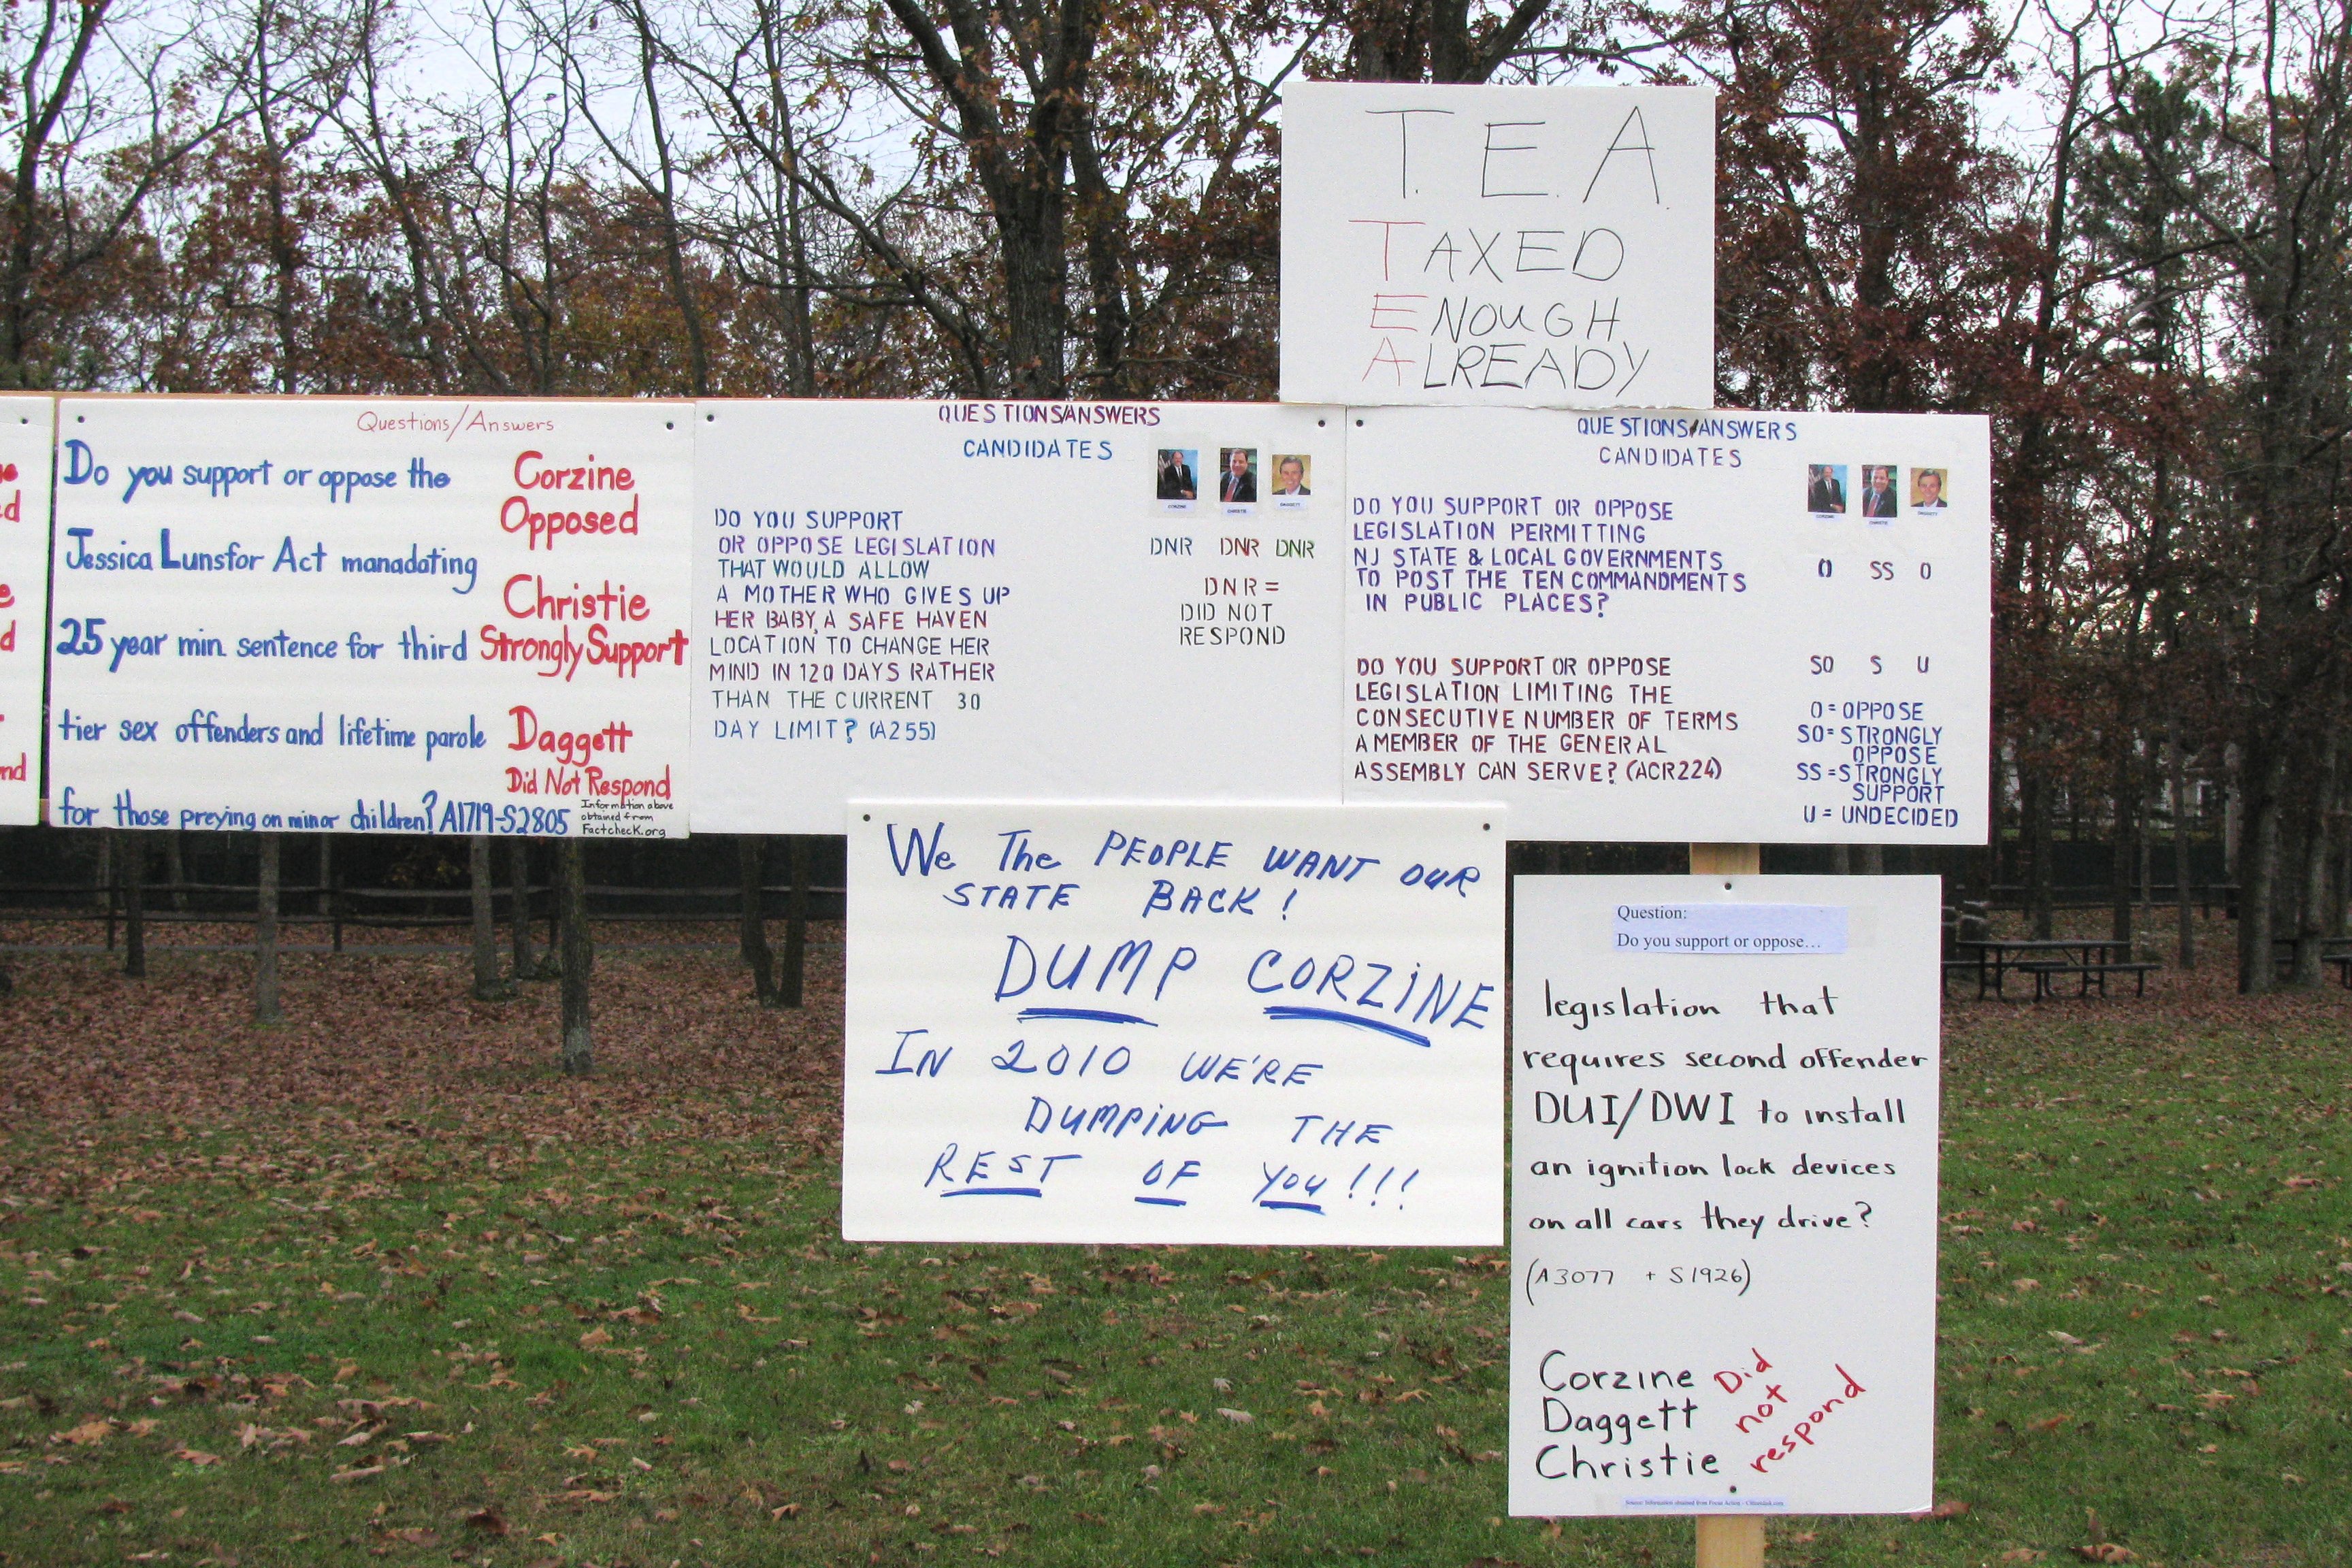 T.E.A.
TAXED
ENOUGH
ALREADY
Questions/Answers
Do you support or oppose the
Jessica Lunsfor Act manadating
25 year min. sentence for third
tier sex offenders and lifetime parole
for those preying on minor children? A1719-S2805
Corzine
Opposed
Christie
Strongly Support
Daggett
Did Not Respond
Information above
obtained from
Factcheck.org
QUESTIONS/ANSWERS
CANDIDATES
CORZINE CHRISTIE DAGGETT
DO YOU SUPPORT
OR OPPOSE LEGISLATION
THAT WOULD ALLOW
A MOTHER WHO GIVES UP
HER BABY, A SAFE HAVEN
LOCATION TO CHANGE HER
MIND IN 120 DAYS RATHER
THAN THE CURRENT 30
DAY LIMIT? (A255)
DNR DNR DNR
DNR =
DID NOT
RESPOND
QUESTIONS/ANSWERS
CANDIDATES
CORZINE CHRISTIE DAGGETT
DO YOU SUPPORT OR OPPOSE
LEGISLATION PERMITTING
NJ STATE & LOCAL GOVERNMENTS
TO POST THE TEN COMMANDMENTS
IN PUBLIC PLACES?
O SS O
DO YOU SUPPORT OR OPPOSE
LEGISLATION LIMITING THE
CONSECUTIVE NUMBER OF TERMS
A MEMBER OF THE GENERAL
ASSEMBLY CAN SERVE? (ACR224)
SO S U
O = OPPOSE
SO = STRONGLY
OPPOSE
SS = STRONGLY
SUPPORT
U = UNDECIDED
We The PEOPLE WANT OUR
STATE BACK!
DUMP CORZINE
IN 2010 WE'RE
DUMPING THE
REST OF YOU!!!
Question:
Do you support or oppose...
legislation that
requires second offender
DUI/DWI to install
an ignition lock devices
on all cars they drive?
(A3077 + S1926)
Corzine
Daggett
Christie
Did
not
respond